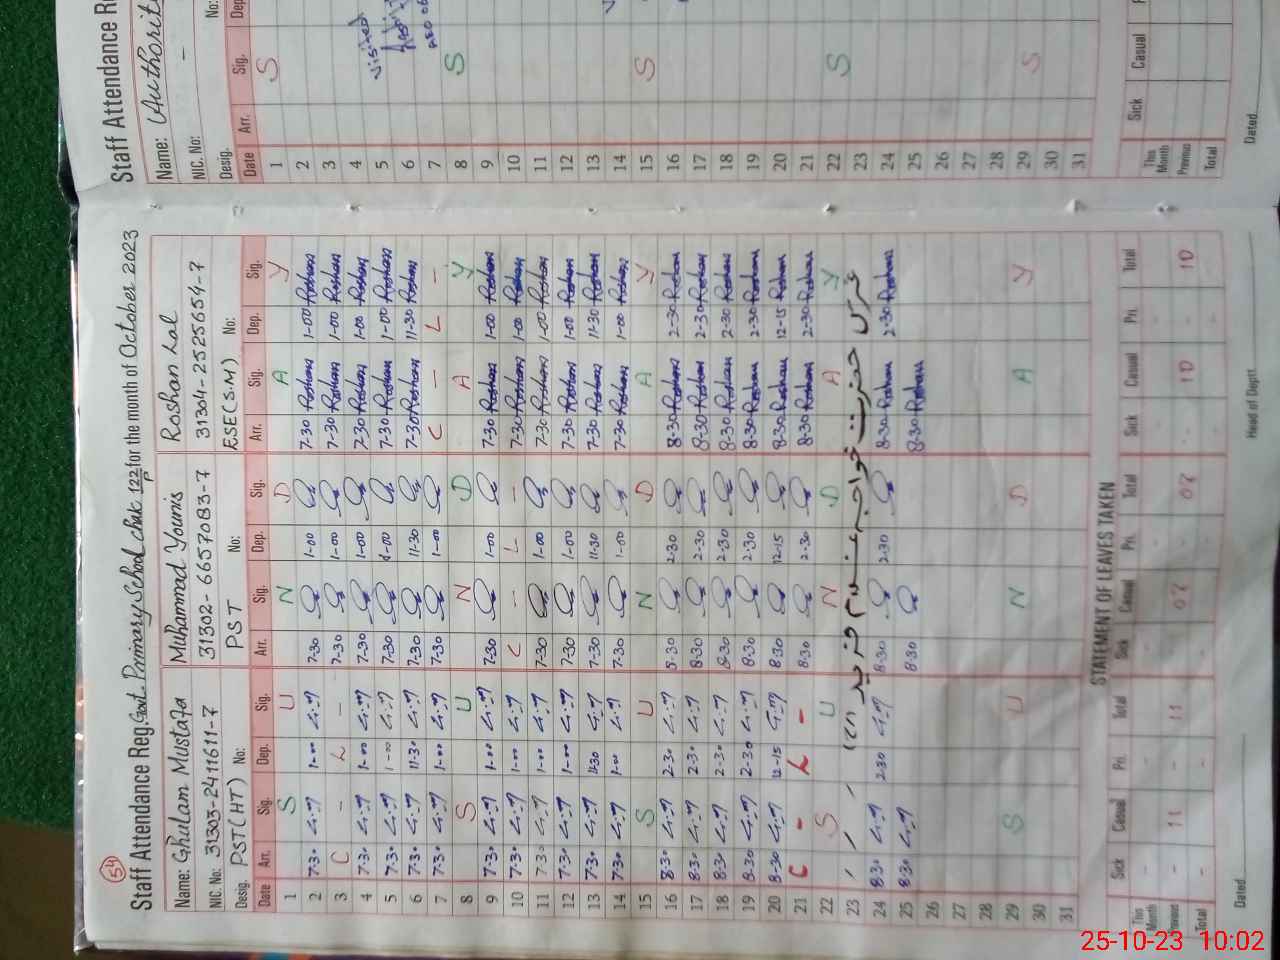 54
Staff Attendance Reg. Govt. Primary School chak 122P for the month of October 2023
Name: Ghulam Mustafa Muhammad Younis Roshan Lal
NIC. No: 31303-2411611-7 31302-6657083-7 31304-2525654-7
Desig. PST(HT) No: PST No: ESE(S.M) No:
Date Arr. Sig. Dep. Sig. Arr. Sig. Dep. Sig. Arr. Sig. Dep. Sig.
1 S U N D A Y
2 7-30 1-00 7-30 1-00 7-30 Roshan 1-00 Roshan
3 C - L - 7-30 1-00 7-30 Roshan 1-00 Roshan
4 7-30 1-00 7-30 1-00 7-30 Roshan 1-00 Roshan
5 7-30 1-00 7-30 1-00 7-30 Roshan 1-00 Roshan
6 7-30 11-30 7-30 11-30 7-30 Roshan 11-30 Roshan
7 7-30 1-00 7-30 1-00 C - L -
8 S U N D A Y
9 7-30 1-00 7-30 1-00 7-30 Roshan 1-00 Roshan
10 7-30 1-00 C - L - 7-30 Roshan 1-00 Roshan
11 7-30 1-00 7-30 1-00 7-30 Roshan 1-00 Roshan
12 7-30 1-00 7-30 1-00 7-30 Roshan 1-00 Roshan
13 7-30 11-30 7-30 11-30 7-30 Roshan 11-30 Roshan
14 7-30 1-00 7-30 1-00 7-30 Roshan 1-00 Roshan
15 S U N D A Y
16 8-30 2-30 8-30 2-30 8-30 Roshan 2-30 Roshan
17 8-30 2-30 8-30 2-30 8-30 Roshan 2-30 Roshan
18 8-30 2-30 8-30 2-30 8-30 Roshan 2-30 Roshan
19 8-30 2-30 8-30 2-30 8-30 Roshan 2-30 Roshan
20 8-30 12-15 8-30 12-15 8-30 Roshan 12-15 Roshan
21 C - L - 8-30 2-30 8-30 Roshan 2-30 Roshan
22 S U N D A Y
23 عرس حضرت خواجہ غلام فرید (رح)
24 8-30 2-30 8-30 2-30 8-30 Roshan 2-30 Roshan
25 8-30 8-30 8-30 Roshan
26
27
28
29 S U N D A Y
30
31
STATEMENT OF LEAVES TAKEN
Sick Casual Pri. Total Sick Casual Pri. Total Sick Casual Pri. Total
This Month
Previous - 11 - 11 - 07 - 07 - 10 - 10
Total
Dated Head of Deptt.
Staff Attendance Re
Name: Authorit
NIC. No: -
Desig. No:
Date Arr. Sig. Dep
1 S
2
3
4 visited
5
6
7
8 S
9
10
11
12
13
14
15 S
16
17
18
19
20
21
22 S
23
24
25
26
27
28
29 S
30
31
Sick Casual P
This Month
Previous
Total
Dated
25-10-23 10:02